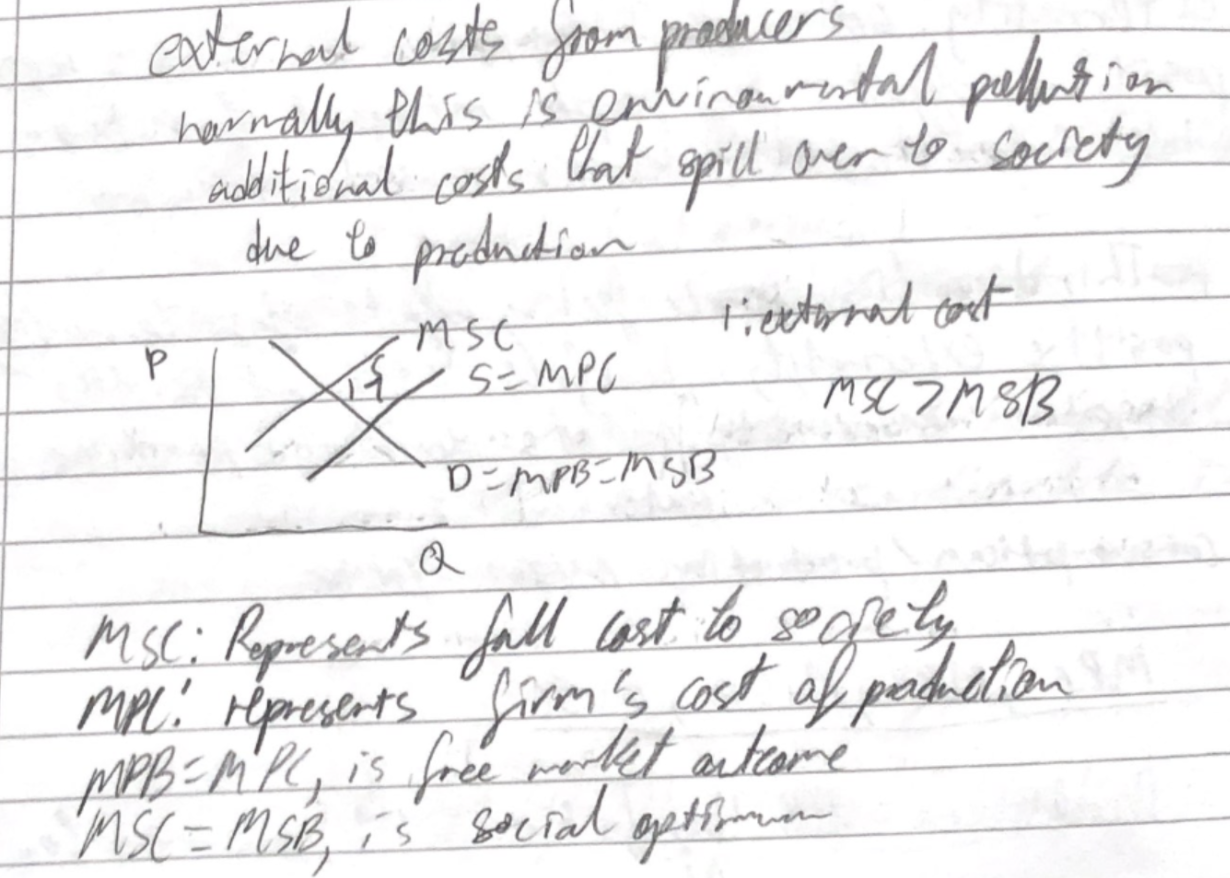 external costs from producers
normally this is environmental pollution
additional costs that spill over to society
due to production
1: external cost
P
MSC
S=MPC
1
MSC>MSB
D=MPB=MSB
Q
MSC: Represents full cost to society
MPC: represents firm's cost of production
MPB=MPC, is free market outcome
MSC=MSB, is social optimum